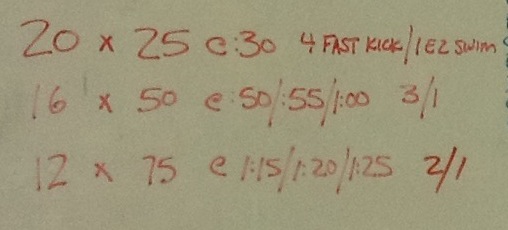 20 x 25 @ :30 4 FAST KICK/1 EZ SWIM
16 x 50 @ :50/:55/1:00 3/1
12 x 75 @ 1:15/1:20/1:25 2/1